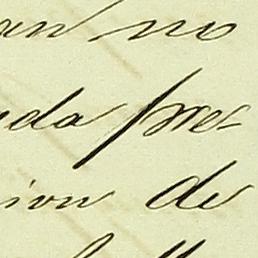 an no
da pre-
ion de